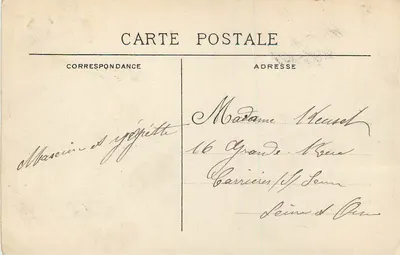 CARTE POSTALE
CORRESPONDANCE
ADRESSE
et
Madame
16 Grande Rue
Carrières s/ Seine
Seine et Oise